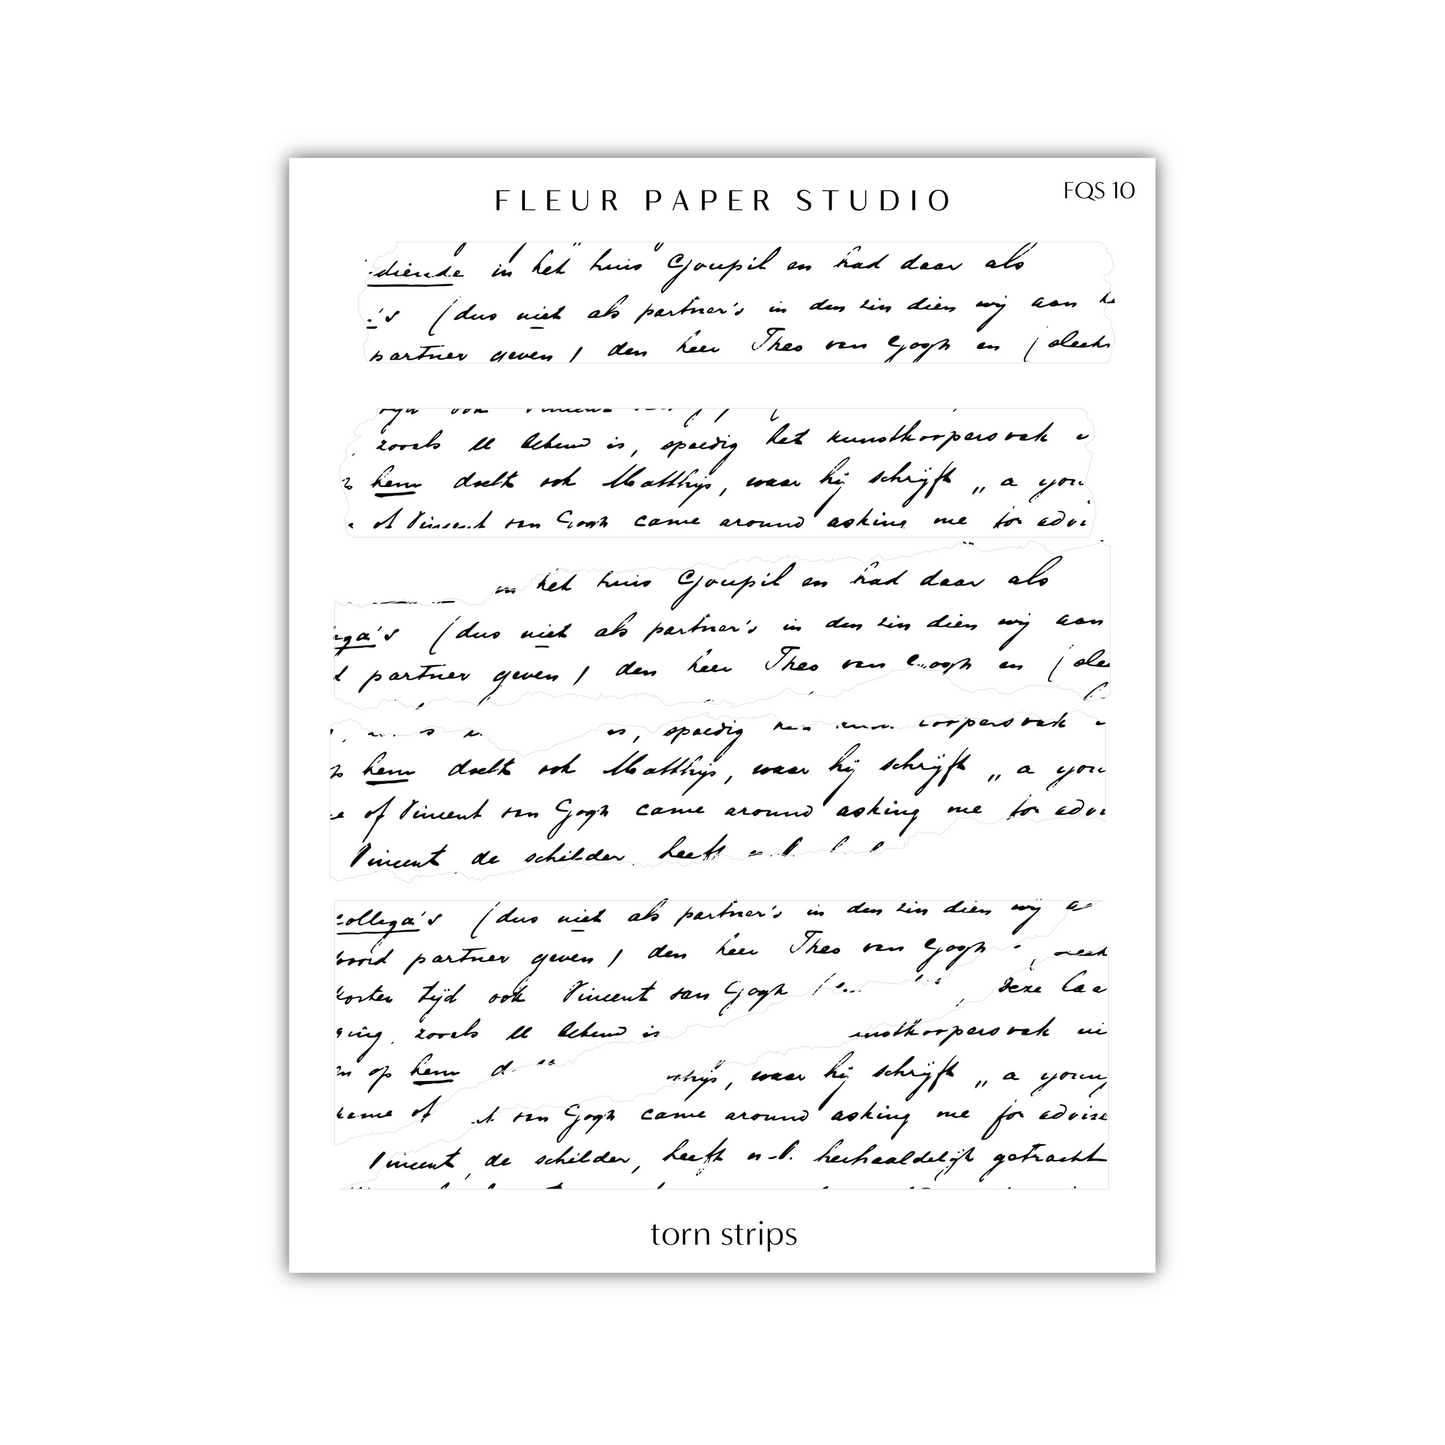 FLEUR PAPER STUDIO
FQS 10
diende in het huis Goupil en had daar als
's (dus niet als partner's in den zin dien wij aan
partner geven) den heer Theo van Gogh en (slechts
zooals U bekend is, spoedig het kunstkoopersvak
hem doelt ook Matthijs, waar hij schrijft „a you
of Vincent van Gogh came around asking me for advi
in het huis Goupil en had daar als
ega's (dus niet als partner's in den zin dien wij aan
d partner geven) den heer Theo van Gogh en (sle
is, spoedig koopersvak
hem doelt ook Matthijs, waar hij schrijft „a you
e of Vincent van Gogh came around asking me for advi
Vincent de schilder, heeft
collega's (dus niet als partner's in den zin dien wij a
woord partner geven) den heer Theo van Gogh
korten tijd ook Vincent van Gogh Deze laa
ging, zooals U bekend is unstkoopersvak in
en op hem d hijs, waar hij schrijft „a young
came of t van Gogh came around asking me for advise
Vincent, de schilder, heeft herhaaldelijk getracht
torn strips